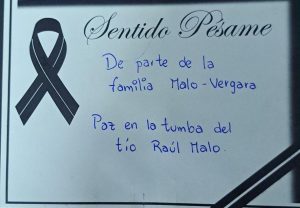 Sentido Pésame
De parte de la
familia Malo-Vergara
Paz en la tumba del
tío Raúl Malo.